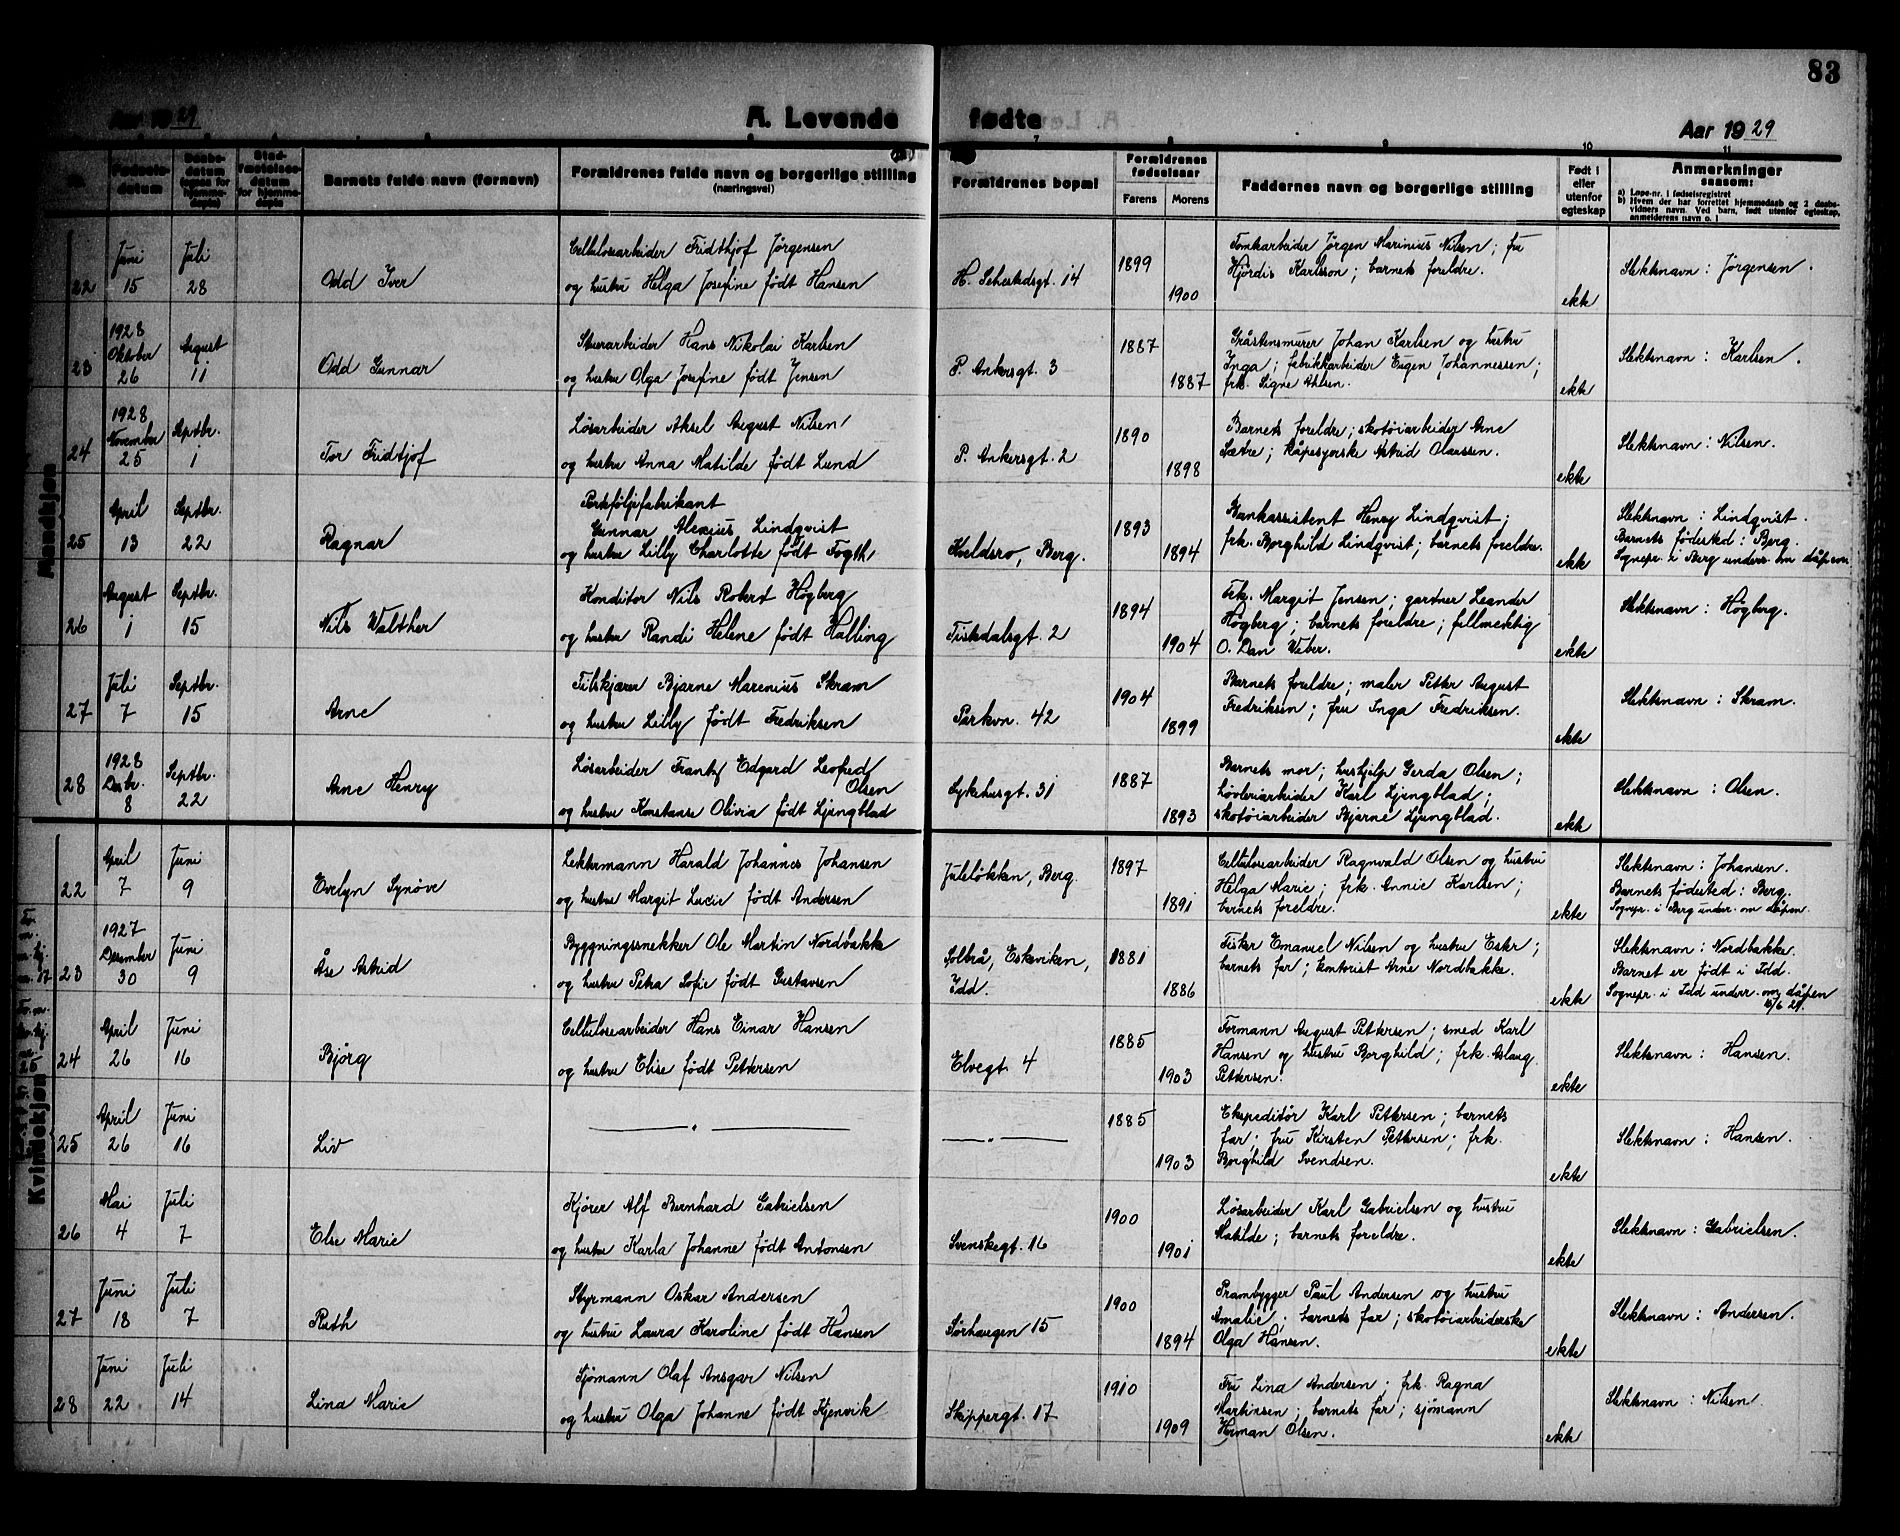 83
Aar 1929
A. Levende fødte
Aar 1929
Fødsels-
datum
Barnets fulde navn (fornavn)
Forældrenes fulde navn og borgerlige stilling
(næringsvei)
Forældrenes bopæl
Forældrenes
fødselsaar
Farens
Morens
Faddernes navn og borgerlige stilling
Født i
eller
utenfor
egteskap
Anmerkninger
saasom:
a) Løpe-nr. i fødselsregistret
b) Hvem der har forrettet hjemmedaab og 2 daabs-
vidners navn. Ved barn, født utenfor egteskap,
anmelderens navn o. l
Mandkjøn
22
Juni
15
Juli
28
Odd Iver
Cellulosearbeider Fridthjof Jørgensen
og hustru Helga Josefine født Hansen
H. Sehestedsgt. 14
1899
1900
Tomtearbeider Jørgen Marinius Nilsen; fru
Hjørdis Karlsson; barnets foreldre.
ekte
Slektsnavn: Jörgensen.
23
1928
Oktober
26
August
11
Odd Gunnar
Stuerarbeider Hans Nikolai Karlsen
og hustru Olga Josefine født Jensen
P. Ankersgt. 3
1887
1887
Gråstensmurer Johan Karlsen og hustru
Inga; fabrikkarbeider Eugen Johannessen;
frk. Signe Ahlsen.
ekte
Slektsnavn: Karlsen.
24
1928
November
25
Septbr.
1
Tor Fridtjof
Løsarbeider Aksel August Nilsen
og hustru Anna Matilde født Lund
P. Ankersgt. 2
1890
1898
Barnets foreldre; skotøiarbeider Arne
Sætre; kåpesyerske Astrid Olaussen.
ekte
Slektsnavn: Nilsen.
25
April
13
Septbr.
22
Ragnar
Portføljefabrikant
Gunnar Alexius Lindqvist
og hustru Lilly Charlotte født Fogth
Kveldsro, Berg.
1893
1894
Bankassistent Henry Lindqvist;
frk. Borghild Lindqvist; barnets foreldre.
ekte
Slektsnavn: Lindqvist.
Barnets fødested: Berg.
Sognepr. i Berg underr. om dåpen
26
August
1
Septbr.
15
Nils Walther
Konditor Nils Robert Högberg
og hustru Randi Helene født Halling
Tistedalsgt. 2
1894
1904
Frk. Margit Jensen; gartner Leander
Högberg; barnets foreldre; fullmektig
O. Dan Weber.
ekte
Slektsnavn: Högberg.
27
Juli
7
Septbr.
15
Arne
Tilskjærer Bjarne Marenius Skram
og hustru Lilly født Fredriksen
Parkvn. 42
1904
1899
Barnets foreldre; maler Petter August
Fredriksen; fru Inga Fredriksen.
ekte
Slektsnavn: Skram.
28
1928
Desbr.
8
Septbr.
22
Arne Henry
Løsarbeider Frantz Edgard Leopold
Olsen
og hustru Konstanse Olivia født Ljungblad
Sykehusgt. 31
1887
1893
Barnets mor; hushjelp Gerda Olsen;
Karl Ljungblad;
skotøiarbeider Bjarne Ljungblad.
ekte
Slektsnavn: Olsen.
Kvindekjøn
22
April
7
Juni
9
Evelyn Synøve
Lektermann Harald Johannes Johansen
og hustru Margit Lucie født Andersen
Juleløkken, Berg.
1897
1891
Cellulosearbeider Ragnvald Olsen og hustru
Helga Marie; frk. Annie Karlsen;
barnets foreldre.
ekte
Slektsnavn: Johansen.
Barnets fødested: Berg.
Sognepr. i Berg underr. om dåpen.
23
1927
Desember
30
Juni
9
Åse Astrid
Byggningssnekker Ole Martin Nordbakke
og hustru Petra Sofie født Gustavsen
Solbrå, Eskeviken,
Idd.
1881
1886
Fisker Emanuel Nilsen og hustru Ester;
barnets far; kontorist Arne Nordbakke.
ekte
Slektsnavn: Nordbakke.
Barnet er født i Idd.
Sognepr. i Idd underr. om dåpen
15/6 29.
24
April
26
Juni
16
Bjørg
Cellulosearbeider Hans Einar Hansen
og hustru Elise født Pettersen
Elvegt. 4
1885
1903
Formann August Pettersen; smed Karl
Hansen og hustru Borghild; frk. Aslaug
Pettersen.
ekte
Slektsnavn: Hansen.
25
April
26
Juni
16
Liv
— " —
— " —
1885
1903
Ekspeditør Karl Pettersen; barnets
far; fru Kirsten Pettersen; frk.
Borghild Svendsen.
ekte
Slektsnavn: Hansen.
26
Mai
4
Juli
7
Else Marie
Kjører Alf Bernhard Gabrielsen
og hustru Karla Johanne født Antonsen
Svenskegt. 16
1900
1901
Løsarbeider Karl Gabrielsen og hustru
Matilde; barnets foreldre.
ekte
Slektsnavn: Gabrielsen.
27
Juni
18
Juli
7
Ruth
Styrmann Oskar Andersen
og hustru Laura Karoline født Hansen
Sørhaugen 15
1900
1894
Prambygger Paul Andersen og hustru
Amalie; barnets far; skotøiarbeiderske
Olga Hansen.
ekte
Slektsnavn: Andersen.
28
Juni
22
Juli
14
Lina Marie
Sjømann Olaf Ansgar Nilsen
og hustru Olga Johanne født Kjenvik
Skippergt. 17
1910
1909
Fru Lina Andersen; frk. Ragna
Martinsen; barnets far; sjømann
Herman Olsen.
ekte
Slektsnavn: Nilsen.